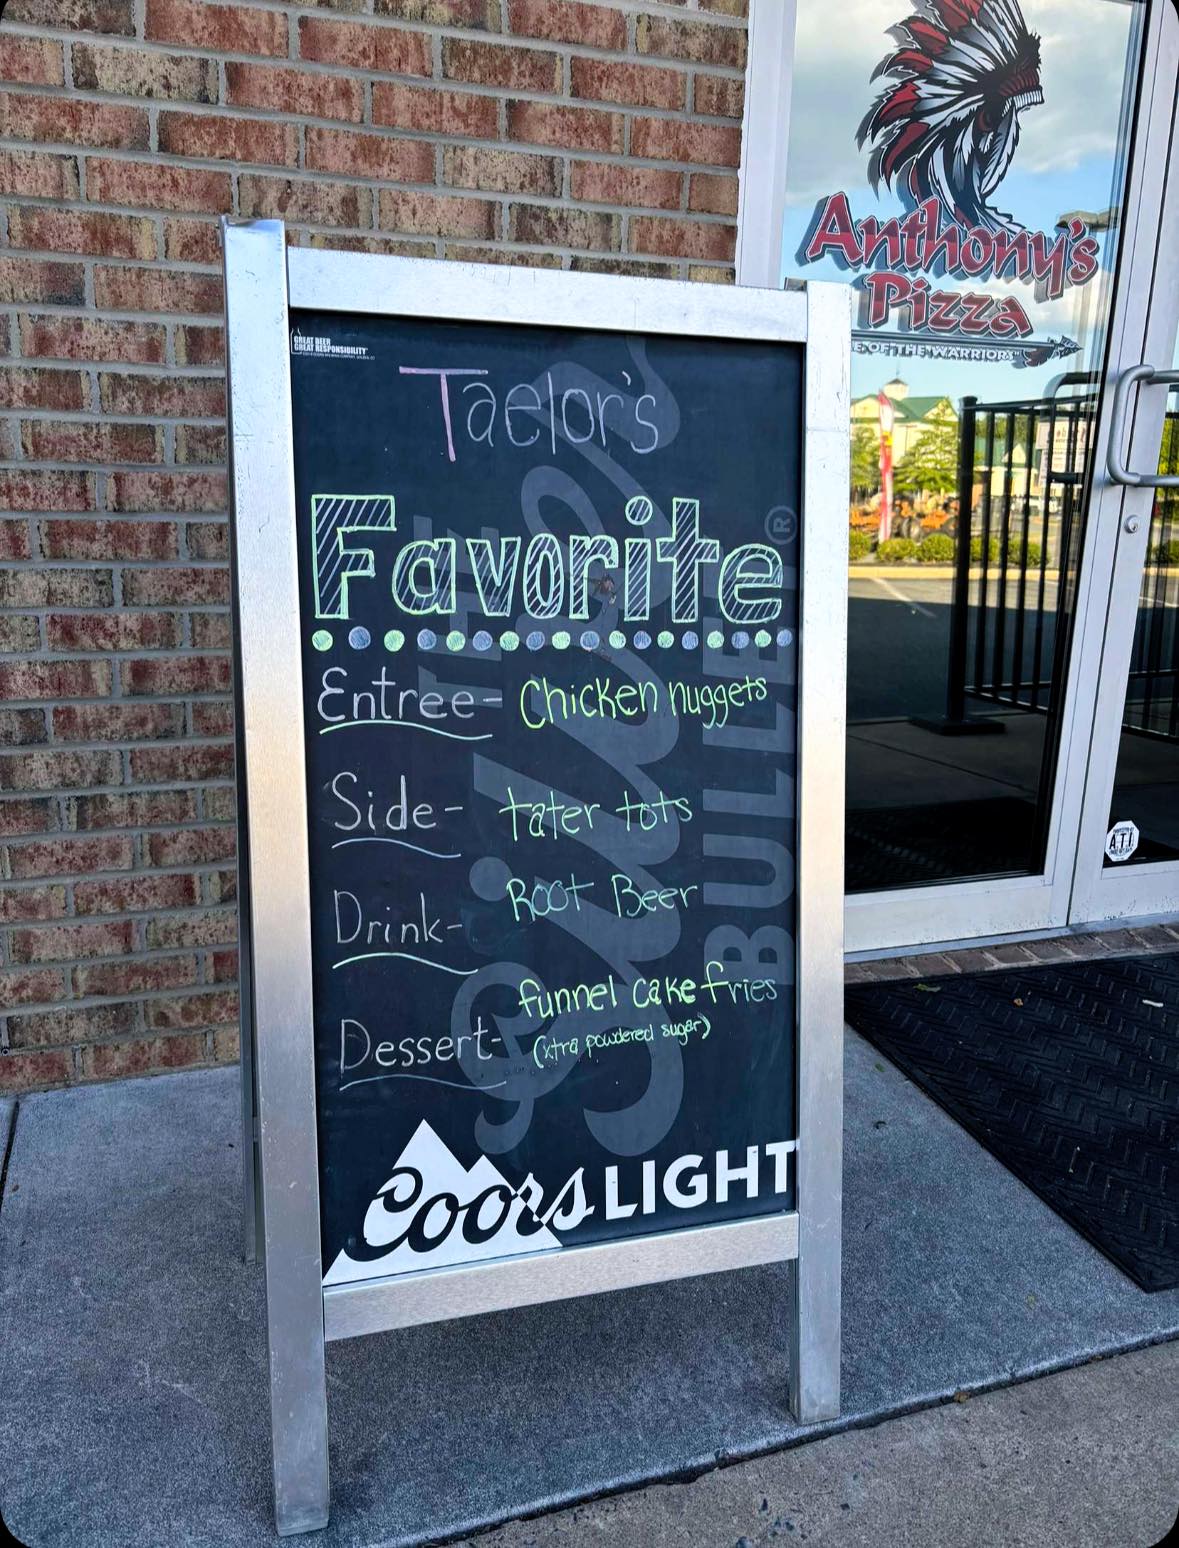 Anthony's
Pizza
E OF THE WARRIORS"
GREAT BEER
GREAT RESPONSIBILITY®
Taelor's
Favorite
Entree- Chicken nuggets
Side- tater tots
Drink- Root Beer
Dessert- funnel cake fries
(xtra powdered sugar)
THE
Silver
BULLET®
Coors LIGHT
A.T.I.